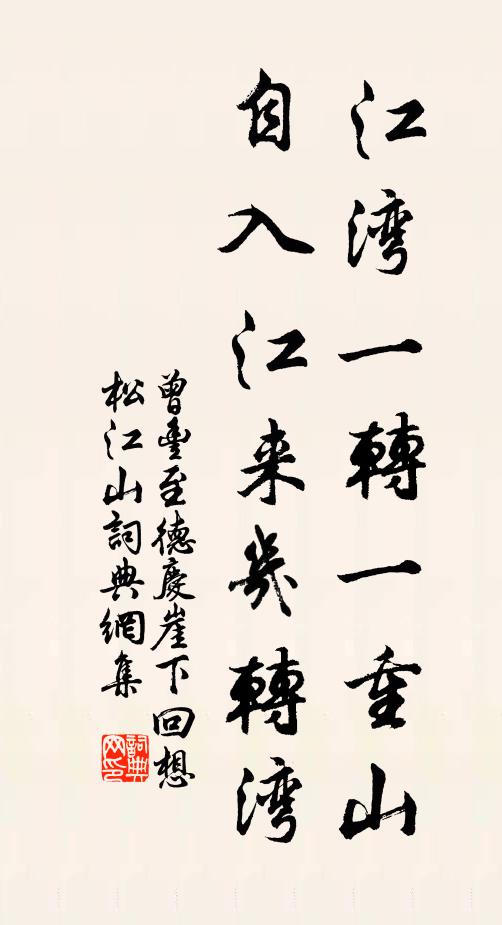 江湾一轉一重山
自入江来幾轉湾
曾豊至德慶崖下回想
松江山詞典網集
詞典网印